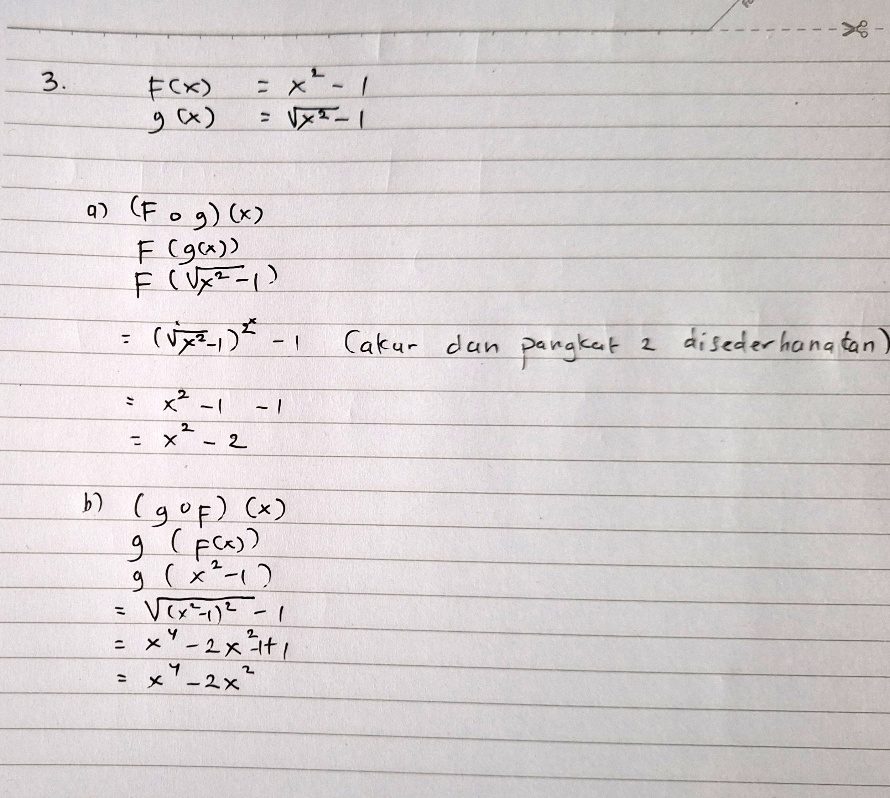 3. F(x) = x² - 1
g(x) = √x² - 1
a) (F o g)(x)
F (g(x))
F (√x² - 1)
= (√x²-1)² - 1 (akar dan pangkat 2 disederhanakan)
= x² - 1 - 1
= x² - 2
b) (g o F) (x)
g (F(x))
g (x² - 1)
= √(x²-1)² - 1
= x⁴ - 2x² -1 + 1
= x⁴ - 2x²